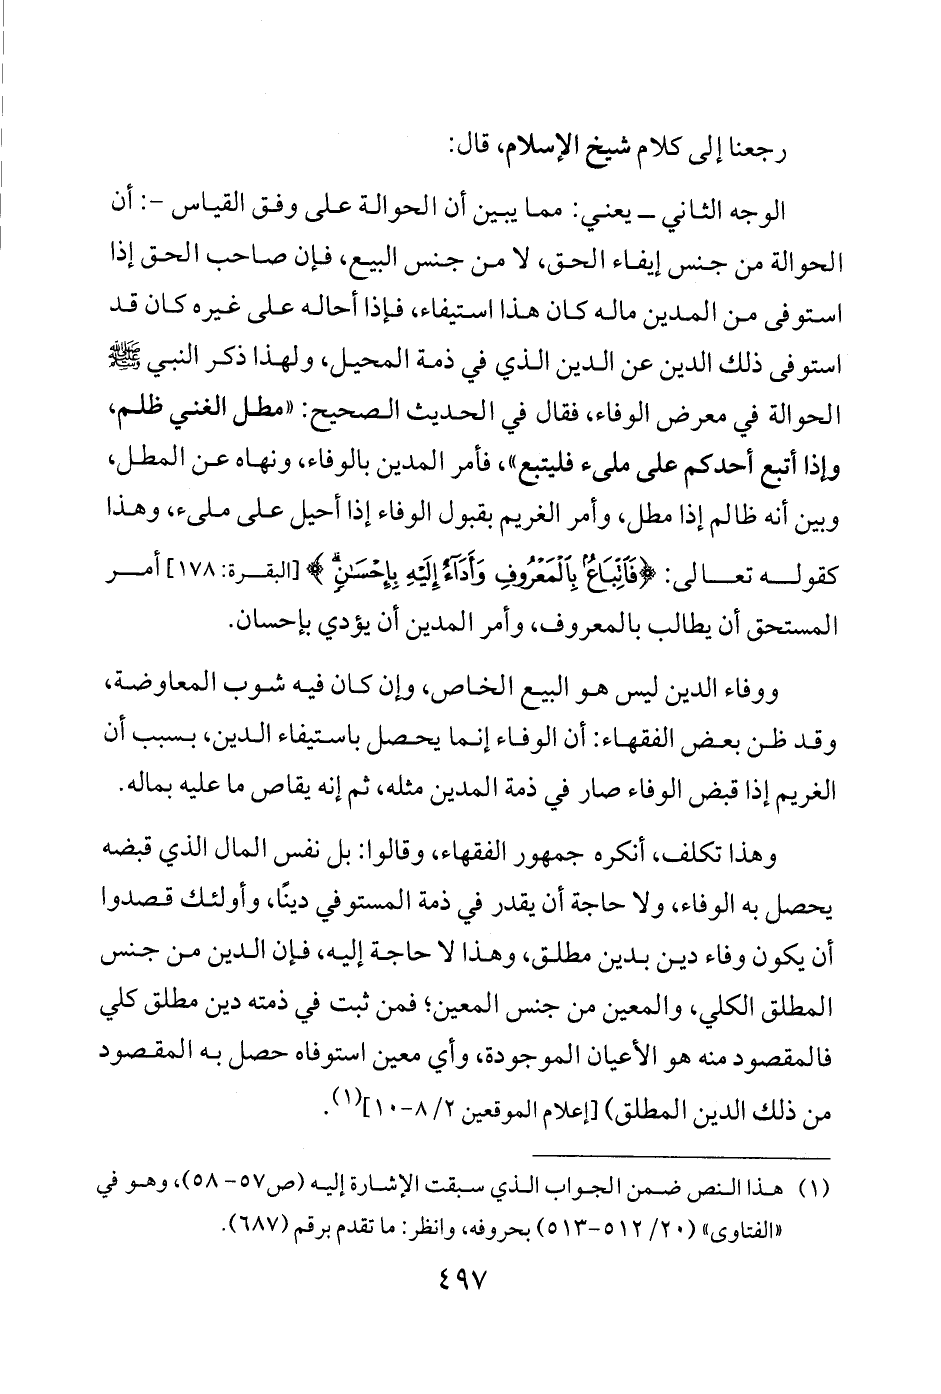 رجعنا إلى كلام شيخ الإسلام، قال:
الوجه الثاني - يعني: مما يبين أن الحوالة على وفق القياس -: أن
الحوالة من جنس إيفاء الحق، لا من جنس البيع، فإن صاحب الحق إذا
استوفى من المدين ماله كان هذا استيفاء، فإذا أحاله على غيره كان قد
استوفى ذلك الدين عن الدين الذي في ذمة المحيل، ولهذا ذكر النبي ﷺ
الحوالة في معرض الوفاء، فقال في الحديث الصحيح: «مطل الغني ظلم،
وإذا أتبع أحدكم على مليء فليتبع»، فأمر المدين بالوفاء، ونهاه عن المطل،
وبين أنه ظالم إذا مطل، وأمر الغريم بقبول الوفاء إذا أحيل على مليء، وهذا
كقوله تعالى: ﴿فَٱتِّبَاعٌۢ بِٱلْمَعْرُوفِ وَأَدَآءٌ إِلَيْهِ بِإِحْسَٰنٍۗ﴾ [البقرة: ١٧٨] أمر
المستحق أن يطالب بالمعروف، وأمر المدين أن يؤدي بإحسان.
ووفاء الدين ليس هو البيع الخاص، وإن كان فيه شوب المعاوضة،
وقد ظن بعض الفقهاء: أن الوفاء إنما يحصل باستيفاء الدين، بسبب أن
الغريم إذا قبض الوفاء صار في ذمة المدين مثله، ثم إنه يقاص ما عليه بماله.
وهذا تكلف، أنكره جمهور الفقهاء، وقالوا: بل نفس المال الذي قبضه
يحصل به الوفاء، ولا حاجة أن يقدر في ذمة المستوفي دينًا، وأولئك قصدوا
أن يكون وفاء دين بدين مطلق، وهذا لا حاجة إليه، فإن الدين من جنس
المطلق الكلي، والمعين من جنس المعين؛ فمن ثبت في ذمته دين مطلق كلي
فالمقصود منه هو الأعيان الموجودة، وأي معين استوفاه حصل به المقصود
من ذلك الدين المطلق) [إعلام الموقعين ٢/ ٨-١٠](١).
(١) هذا النص ضمن الجواب الذي سبقت الإشارة إليه (ص٥٧- ٥٨)، وهو في
«الفتاوى» (٢٠/ ٥١٢-٥١٣) بحروفه، وانظر: ما تقدم برقم (٦٨٧).
٤٩٧